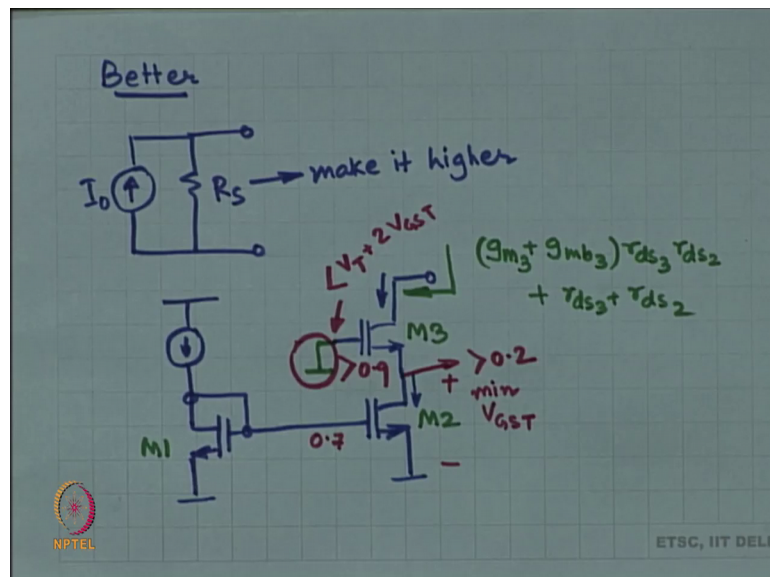 Better
I₀
Rs
make it higher
V_T + 2V_GST
(gm₃ + gmb₃) rds₃ rds₂
+ rds₃ + rds₂
M3
>0.9
>0.2
+
min
V_GST
M1
0.7
M2
−
NPTEL
ETSC, IIT DEL